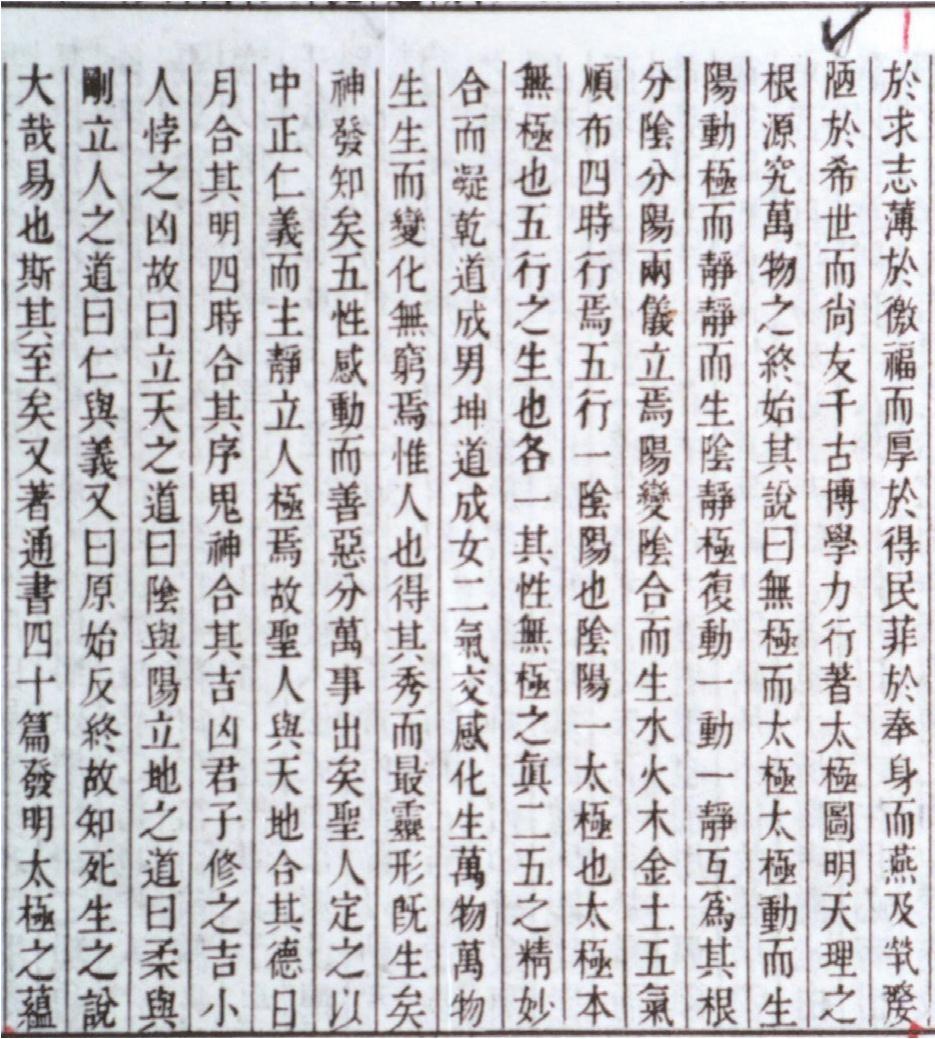 於求志薄於徼福而厚於得民菲於奉身而燕及煢嫠
陋於希世而尙友千古博學力行著太極圖明天理之
根源究萬物之終始其說曰無極而太極太極動而生
陽動極而靜靜而生陰靜極復動一動一靜互爲其根
分陰分陽兩儀立焉陽變陰合而生水火木金土五氣
順布四時行焉五行一陰陽也陰陽一太極也太極本
無極也五行之生也各一其性無極之眞二五之精妙
合而凝乾道成男坤道成女二氣交感化生萬物萬物
生生而變化無窮焉惟人也得其秀而最靈形旣生矣
神發知矣五性感動而善惡分萬事出矣聖人定之以
中正仁義而主靜立人極焉故聖人與天地合其德日
月合其明四時合其序鬼神合其吉凶君子修之吉小
人悖之凶故曰立天之道曰陰與陽立地之道曰柔與
剛立人之道曰仁與義又曰原始反終故知死生之說
大哉易也斯其至矣又著通書四十篇發明太極之蘊